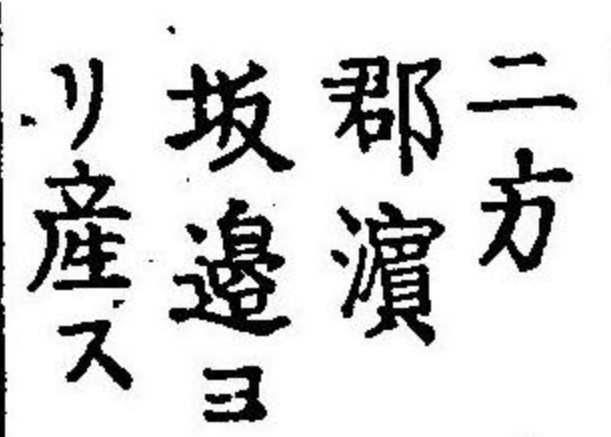 二方
郡濱
坂邉ヨ
リ産ス